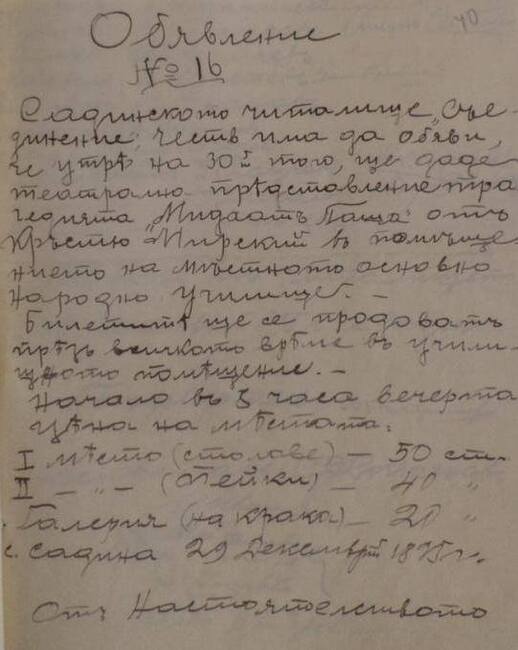 40
Обявление
№ 16
Садинското читалище „Съе-
динение", честь има да обяви,
че утрѣ на 30й того, ще даде
театрално прѣдставление тра
гедията „Мидаатъ Паша" отъ
Кръстю Мирский въ помѣще
нието на мѣстното основно
народно училище. –
Билетитѣ ще се продоватъ
прѣзъ всичкото врѣме въ учили
щното помѣщение. –
Начало въ 5 часа вечерта
цѣна на мѣстата:
I мѣсто (столове) – 50 ст.
II – „ – (Пейки) – 40 „
Галерия (на крака) – 20 „
с. Садина 29 Декемврий 1895 г.
Отъ Настоятелството